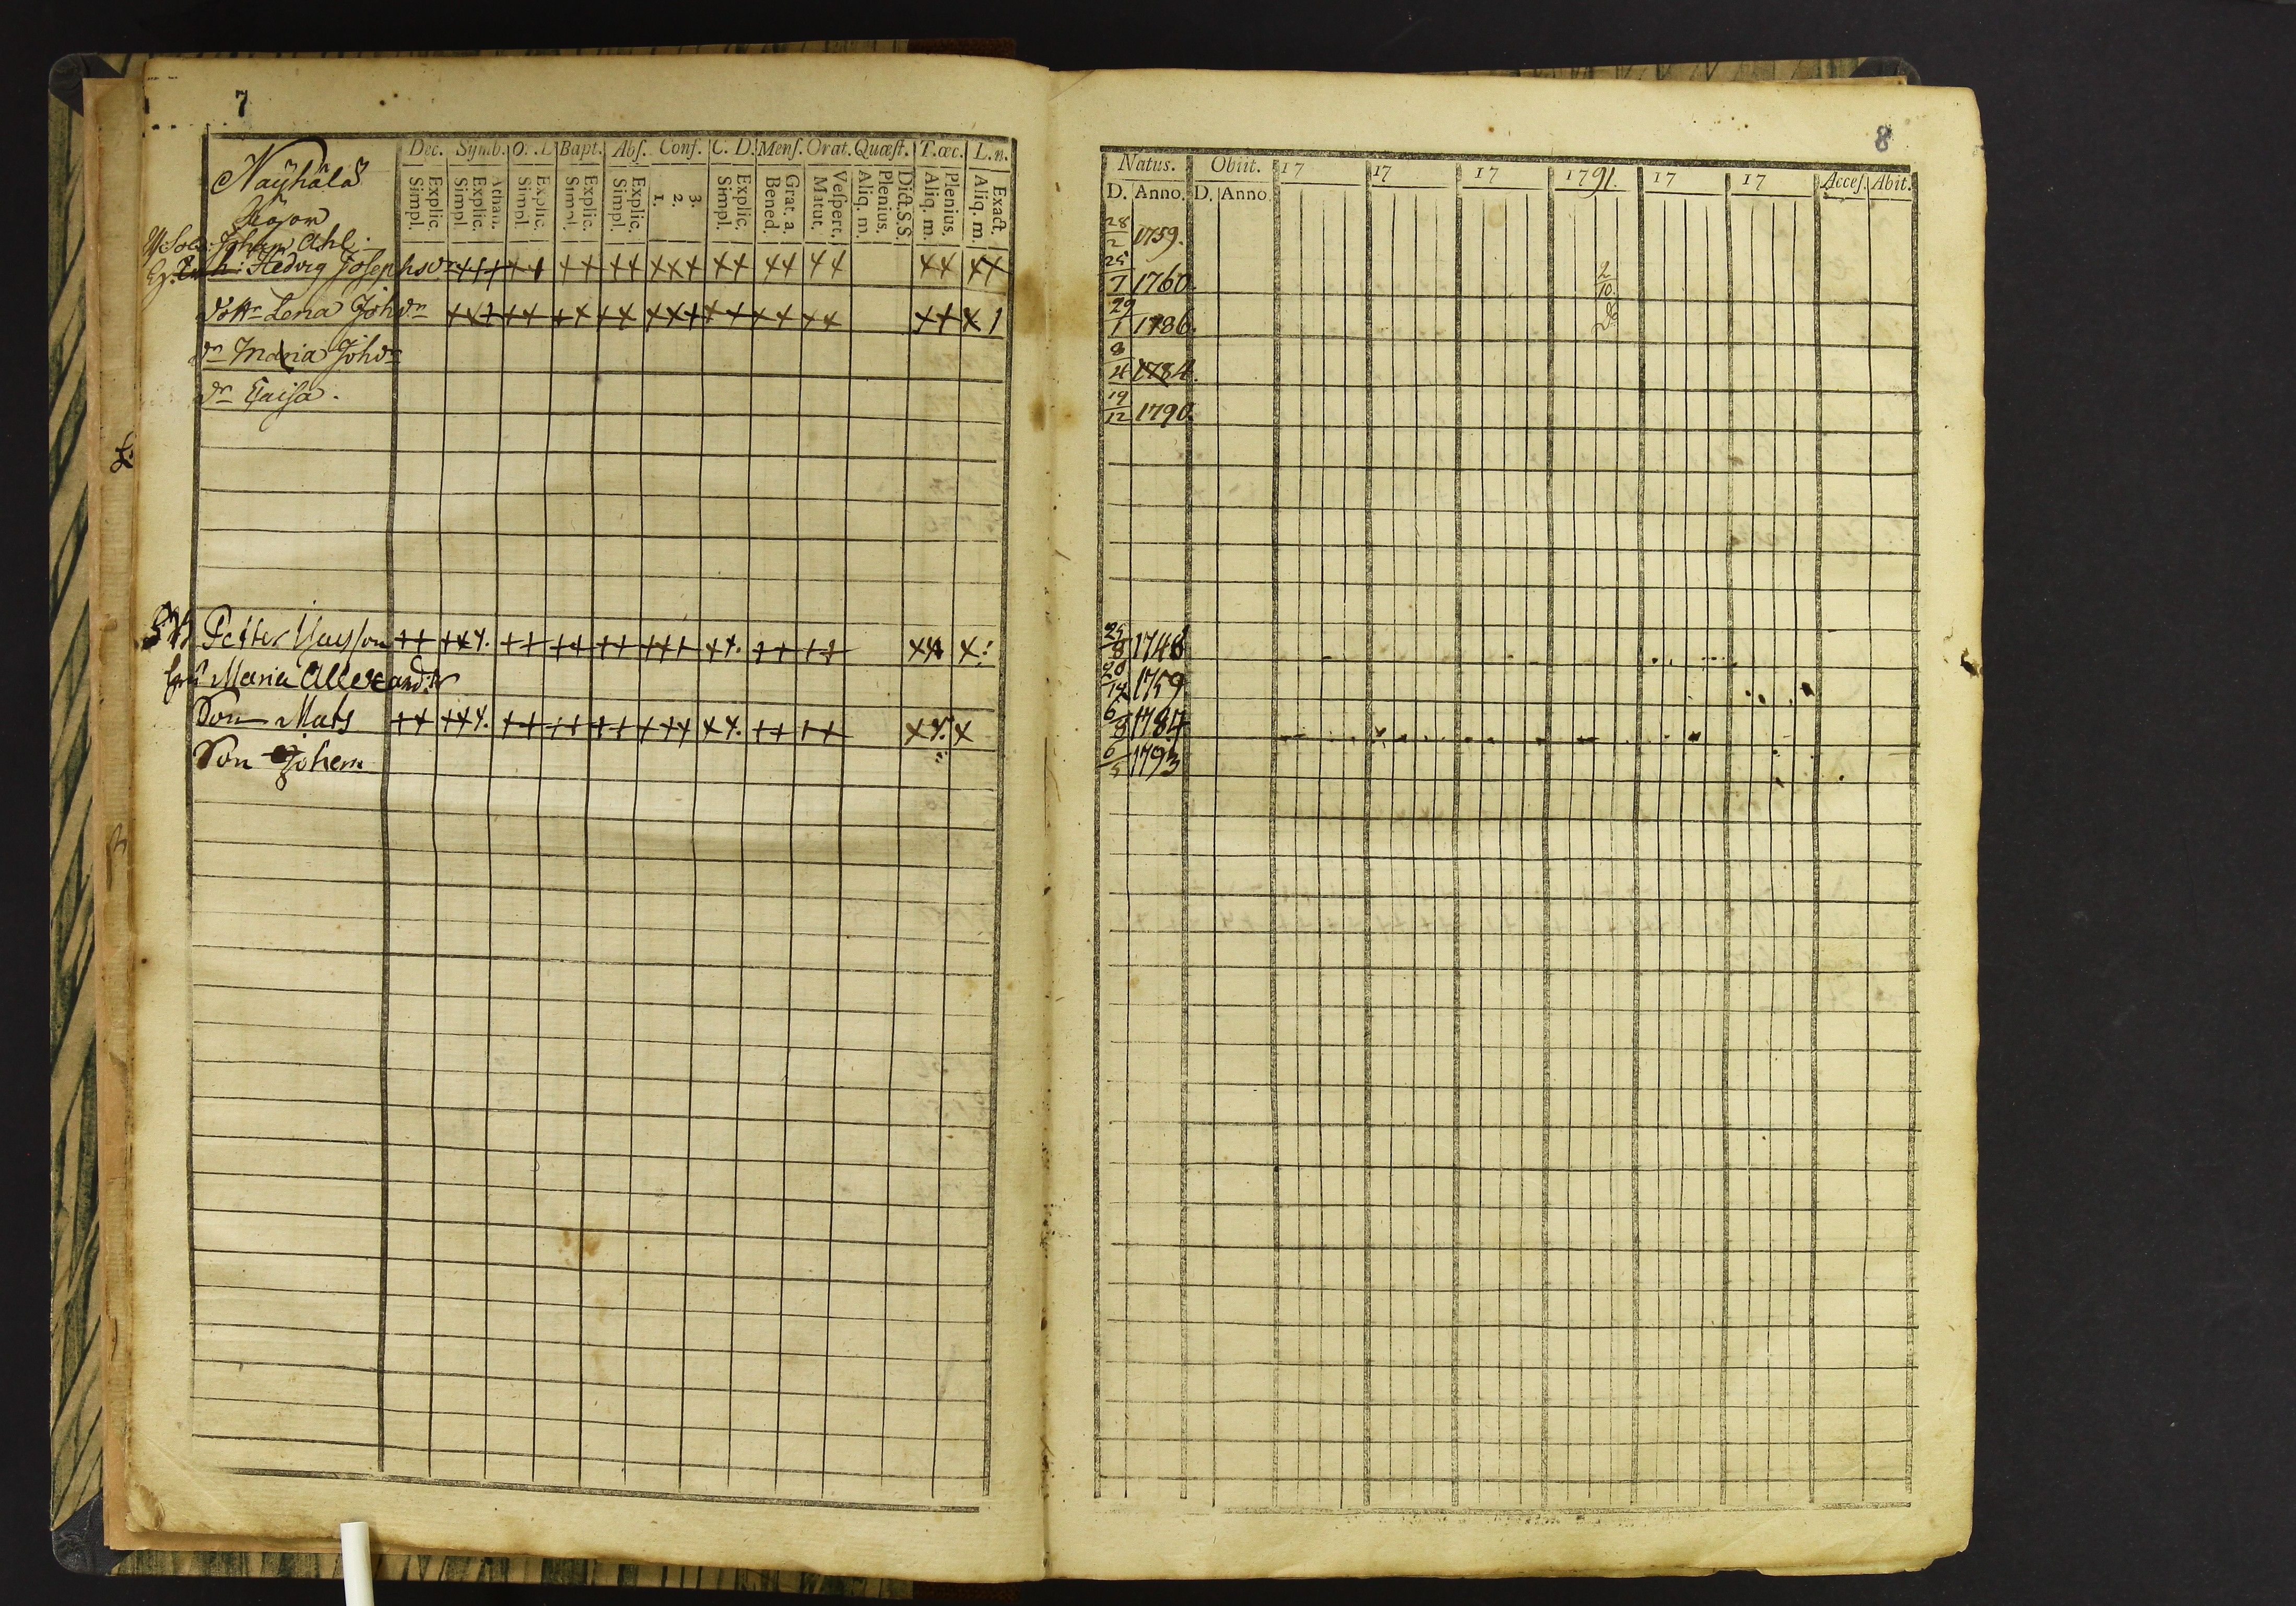 7
Dec. Symb. O. D. Bapt. Abs. Conf. C. D. Mens. Orat. Quæst. T. œc. L. n.
Explic. Simpl. Athan. Explic. Simpl Explic. Simpl Explic. Simpl. Explic. Simpl. 3. 2. 1. Explic. Simpl. Grat. a. Bened. Vespert. Matut. Dict. S. S. Plenius. Aliq. m. Plenius. Aliq. m. Exact. Aliq. m.
Näyhälä
Johan Ahl.
h: Hedvig Josephsdr +++ ++ ++ ++ +++ ++ ++ ++ ++ ++
dottr Lena Johdr +++ ++ ++ ++ +++ ++ ++ ++ ++ + 1
dr Maria Johdr
dr Caisa.
Petter ++ +++. ++ ++ ++ +++ ++. ++ ++ ++ +
Maria
Son Mats ++ +++. ++ ++ ++ +++ ++. ++ ++ ++. +
Son Johan
8
Natus. Obiit. 17 17 17 1791. 17 17 Acces. Abit.
D. Anno. D. Anno.
28/2 1759.
25/7 1760. 2/10.
29/1 1786. Do
8/4 1784.
19/12 1790.
25/8 1746
20/12 1759
6/8 1784
6/5 1793